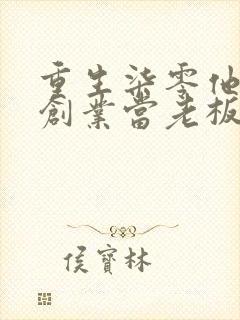 重生柒零他
創業當老板
侯寶林